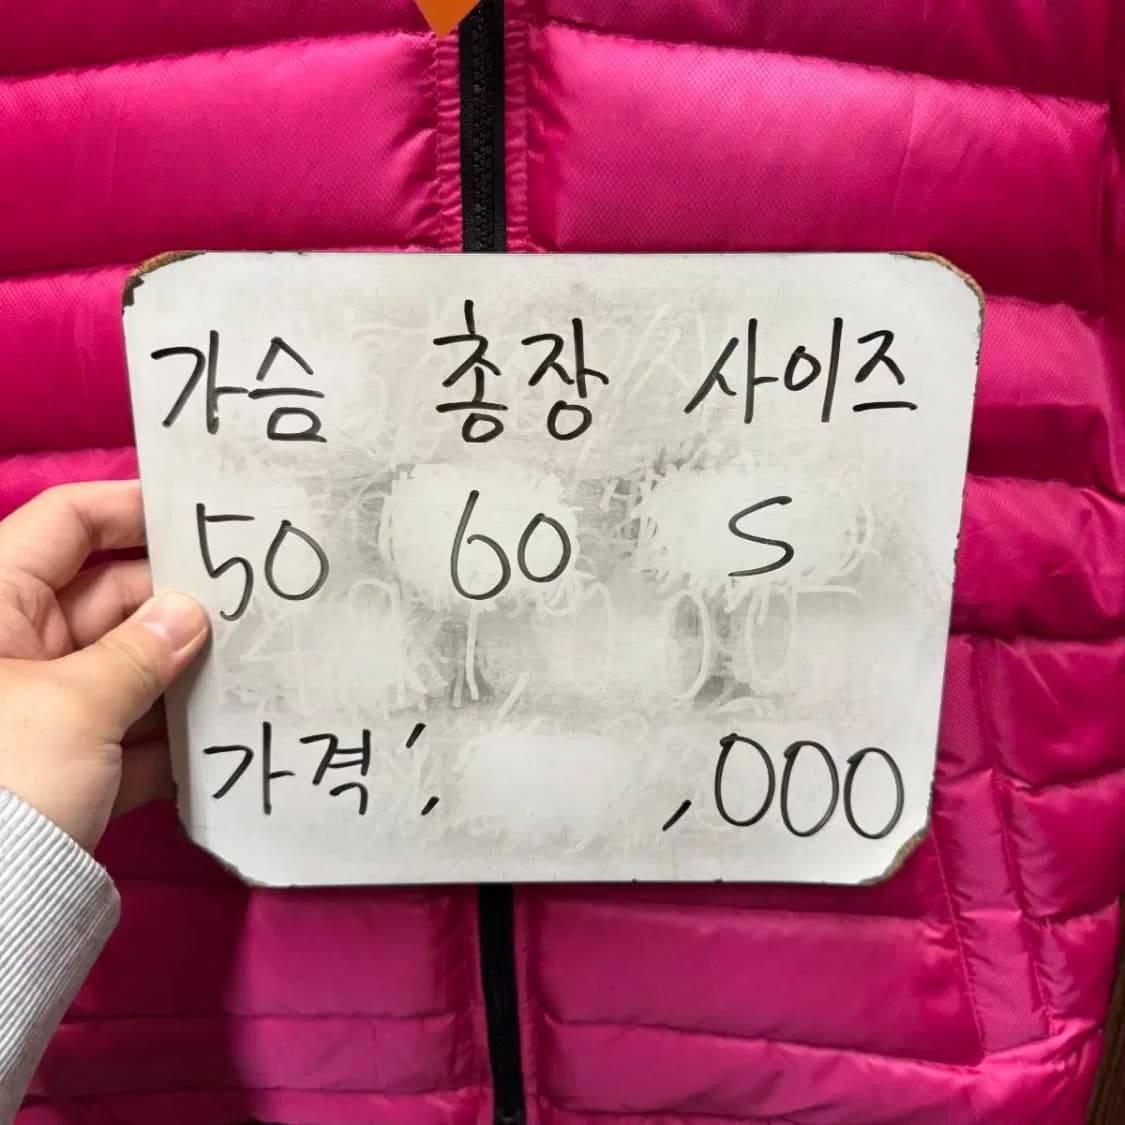 가슴 총장 사이즈
50 60 S
가격: ,000